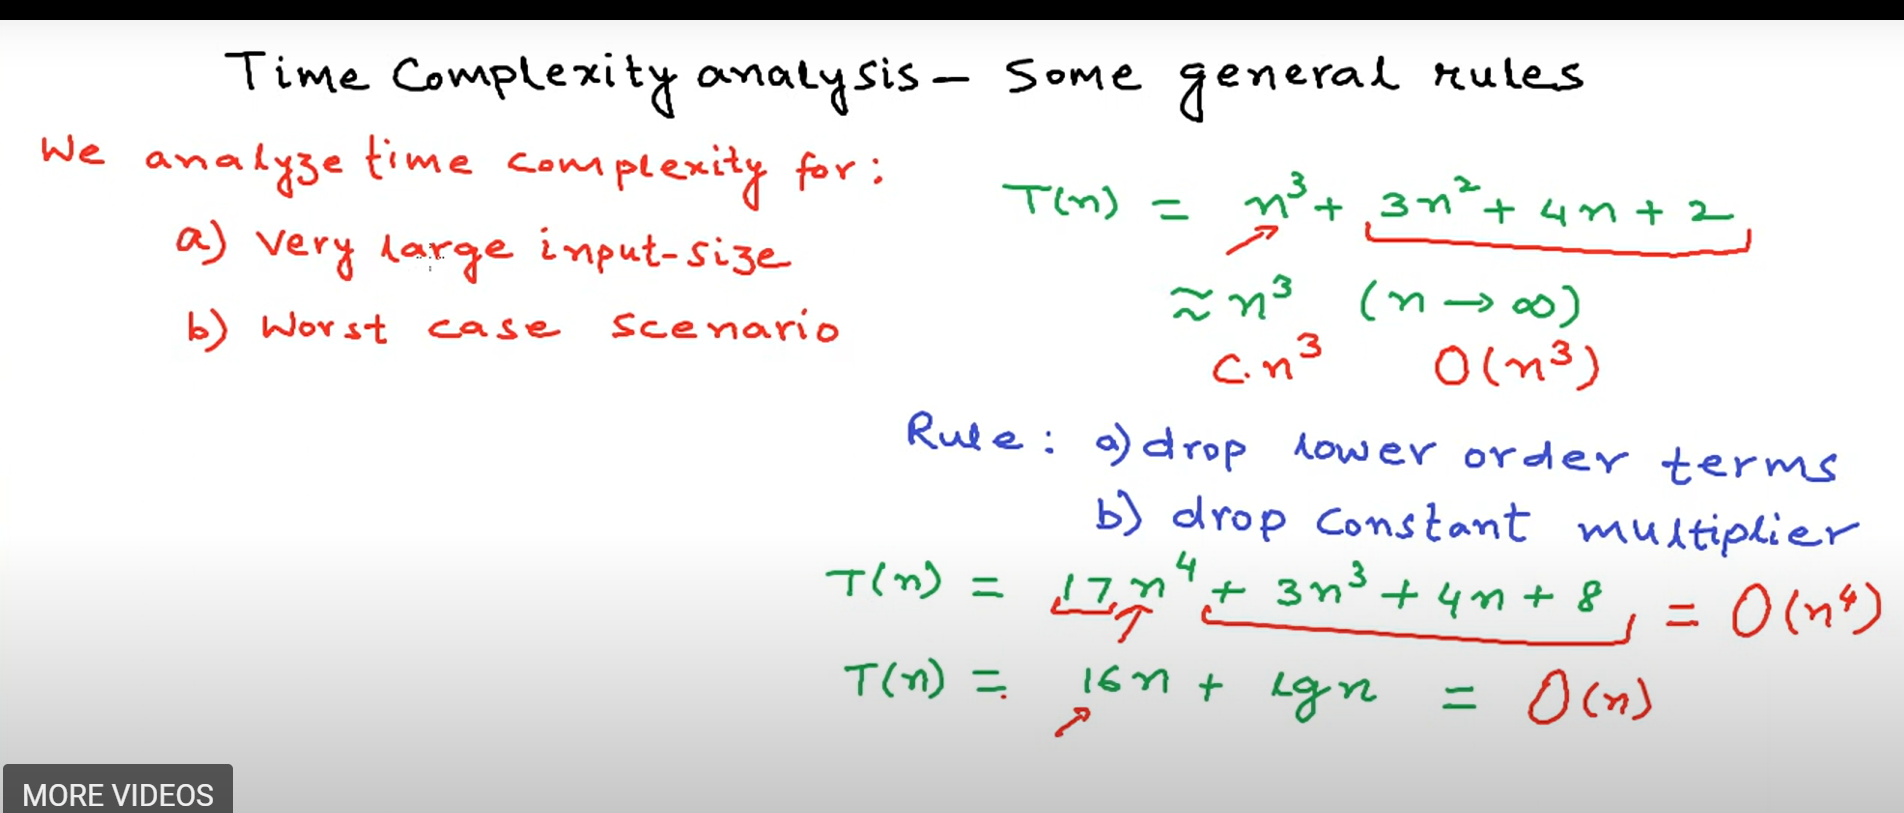 Time Complexity analysis – Some general rules
We analyze time complexity for:
a) Very large input-size
b) Worst case scenario
T(n) = n³ + 3n² + 4n + 2
≈ n³ (n → ∞)
C.n³ O(n³)
Rule: a) drop lower order terms
b) drop constant multiplier
T(n) = 17n⁴ + 3n³ + 4n + 8 = O(n⁴)
T(n) = 16n + lgn = O(n)
MORE VIDEOS